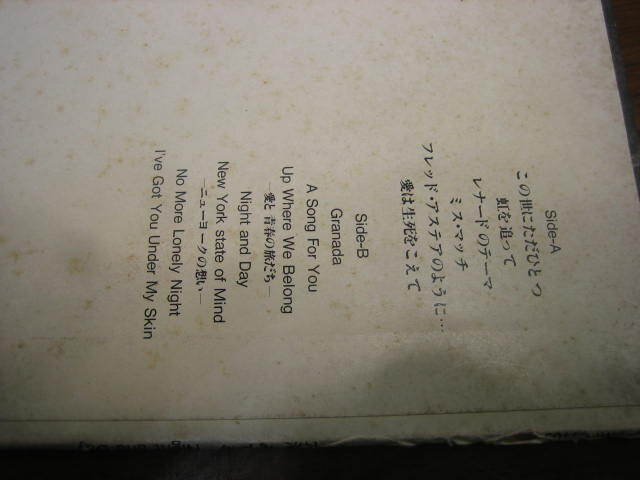 Side-A
この世にただひとつ
虹を追って
レナードのテーマ
ミス・マッチ
フレッド・アステアのように…
愛は生死をこえて
Side-B
Granada
A Song For You
Up Where We Belong
—愛と青春の旅だち—
Night and Day
New York state of Mind
—ニューヨークの想い—
No More Lonely Night
I've Got You Under My Skin